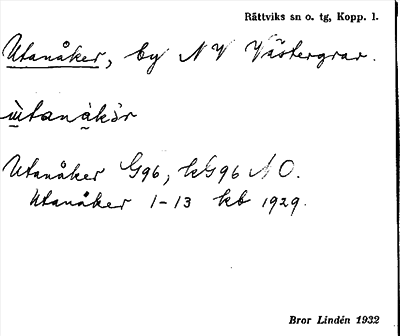 Rättviks sn o. tg, Kopp. l.
Utanåker, by NV Västergrav.
ùtanàkär
Utanåker G96, kG96 NO.
Utanåker 1-13 kb 1929.
Bror Lindén 1932